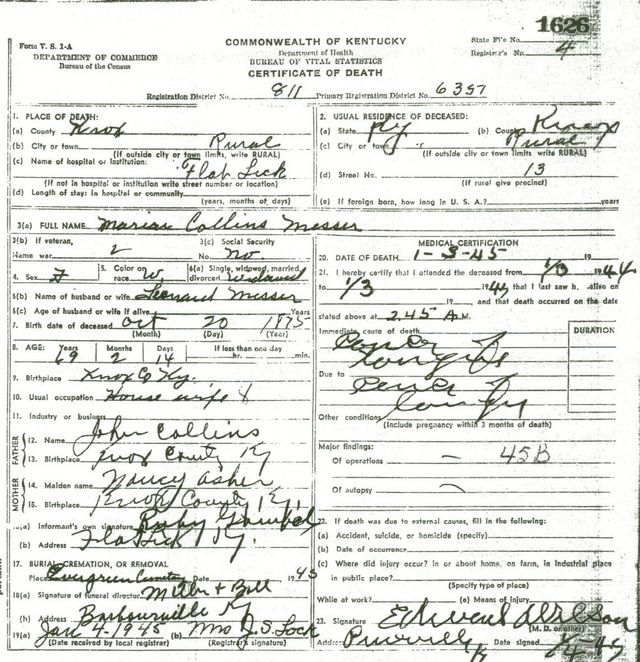 1626
Form V. S. 1-A
DEPARTMENT OF COMMERCE
Bureau of the Census
COMMONWEALTH OF KENTUCKY
Department of Health
BUREAU OF VITAL STATISTICS
CERTIFICATE OF DEATH
State File No.
Registrar's No. 4
Registration District No. 811 Primary Registration District No. 6357
1. PLACE OF DEATH:
(a) County Knox
(b) City or town Rural
(If outside city or town limits, write RURAL)
(c) Name of hospital or institution:
Flat Lick
(If not in hospital or institution write street number or location)
(d) Length of stay: in hospital or community
(years, months or days)
2. USUAL RESIDENCE OF DECEASED:
(a) State Ky (b) County Knox
(c) City or town Rural
(If outside city or town limits, write RURAL)
(d) Street No. 13
(If rural give precinct)
(e) If foreign born, how long in U. S. A.? years
3(a) FULL NAME Collins Messer
3(b) If veteran,
name war 2
3(c) Social Security
No. no
4. Sex F
5. Color or
race W
6(a) Single, widowed, married,
divorced Widowed
6(b) Name of husband or wife Leonard Messer
6(c) Age of husband or wife if alive Years
7. Birth date of deceased Oct 20 1875
(Month) (Day) (Year)
8. AGE: Years Months Days If less than one day
69 2 14 hr. min.
9. Birthplace Knox Co Ky.
10. Usual occupation House wife
11. Industry or business
FATHER
12. Name John Collins
13. Birthplace Knox County Ky
MOTHER
14. Maiden name Nancy Asher
15. Birthplace Knox County Ky.
16(a) Informant's own signature
(b) Address Flat Lick Ky.
17. BURIAL, CREMATION, OR REMOVAL
Place Evergreen Cemetery Date 1945
18(a) Signature of funeral director Miller + Bell
(b) Address Barbourville Ky
19(a) Jan 4-1945 (b) Mrs J. S. Lock
(Date received by local registrar) (Registrar's signature)
MEDICAL CERTIFICATION
20. DATE OF DEATH 1-3-45 19
21. I hereby certify that I attended the deceased from 1/3 1944
to 1/3 that I last saw h. alive on
19 and that death occurred on the date
stated above at 2.45 A.M.
Immediate cause of death
DURATION
Due to
Other conditions
(Include pregnancy within 3 months of death)
Major findings:
Of operations — 45B
Of autopsy —
22. If death was due to external causes, fill in the following:
(a) Accident, suicide, or homicide (specify)
(b) Date of occurrence
(c) Where did injury occur? in or about home, on farm, in industrial place
in public place?
(Specify type of place)
While at work? (e) Means of injury
23. Signature
(M. D. or other)
Address Date signed